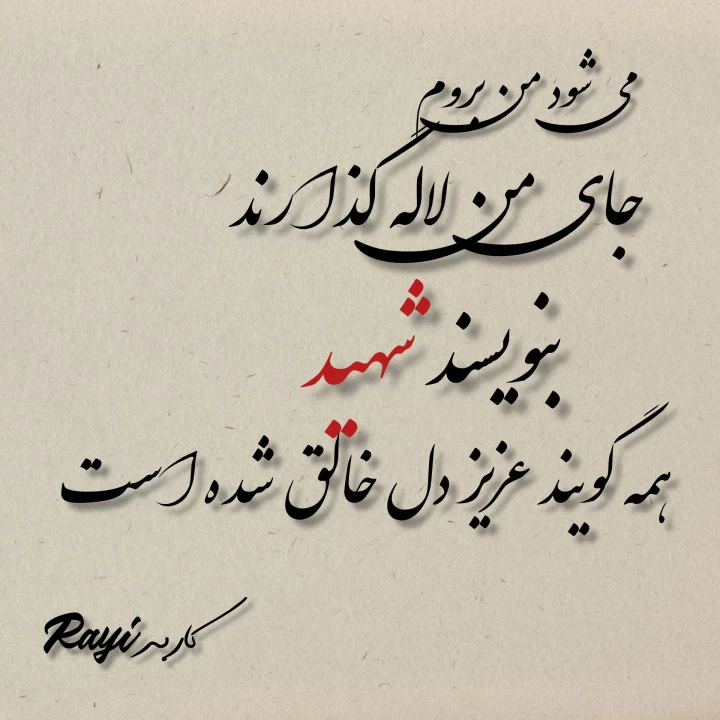 می شود من بروم
جای من لاله گذارند
بنویسند شهید
همه گویند عزیز دل خالق شده است
کاربر Rayi